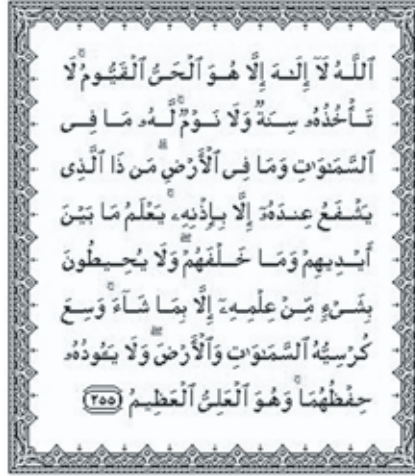 ٱللَّهُ لَآ إِلَـٰهَ إِلَّا هُوَ ٱلْحَىُّ ٱلْقَيُّومُ ۚ لَا
تَأْخُذُهُۥ سِنَةٌ وَلَا نَوْمٌ ۚ لَّهُۥ مَا فِى
ٱلسَّمَـٰوَٰتِ وَمَا فِى ٱلْأَرْضِ ۗ مَن ذَا ٱلَّذِى
يَشْفَعُ عِندَهُۥٓ إِلَّا بِإِذْنِهِۦ ۚ يَعْلَمُ مَا بَيْنَ
أَيْدِيهِمْ وَمَا خَلْفَهُمْ ۖ وَلَا يُحِيطُونَ
بِشَىْءٍ مِّنْ عِلْمِهِۦٓ إِلَّا بِمَا شَآءَ ۚ وَسِعَ
كُرْسِيُّهُ ٱلسَّمَـٰوَٰتِ وَٱلْأَرْضَ ۖ وَلَا يَـُٔودُهُۥ
حِفْظُهُمَا ۚ وَهُوَ ٱلْعَلِىُّ ٱلْعَظِيمُ ٢٥٥